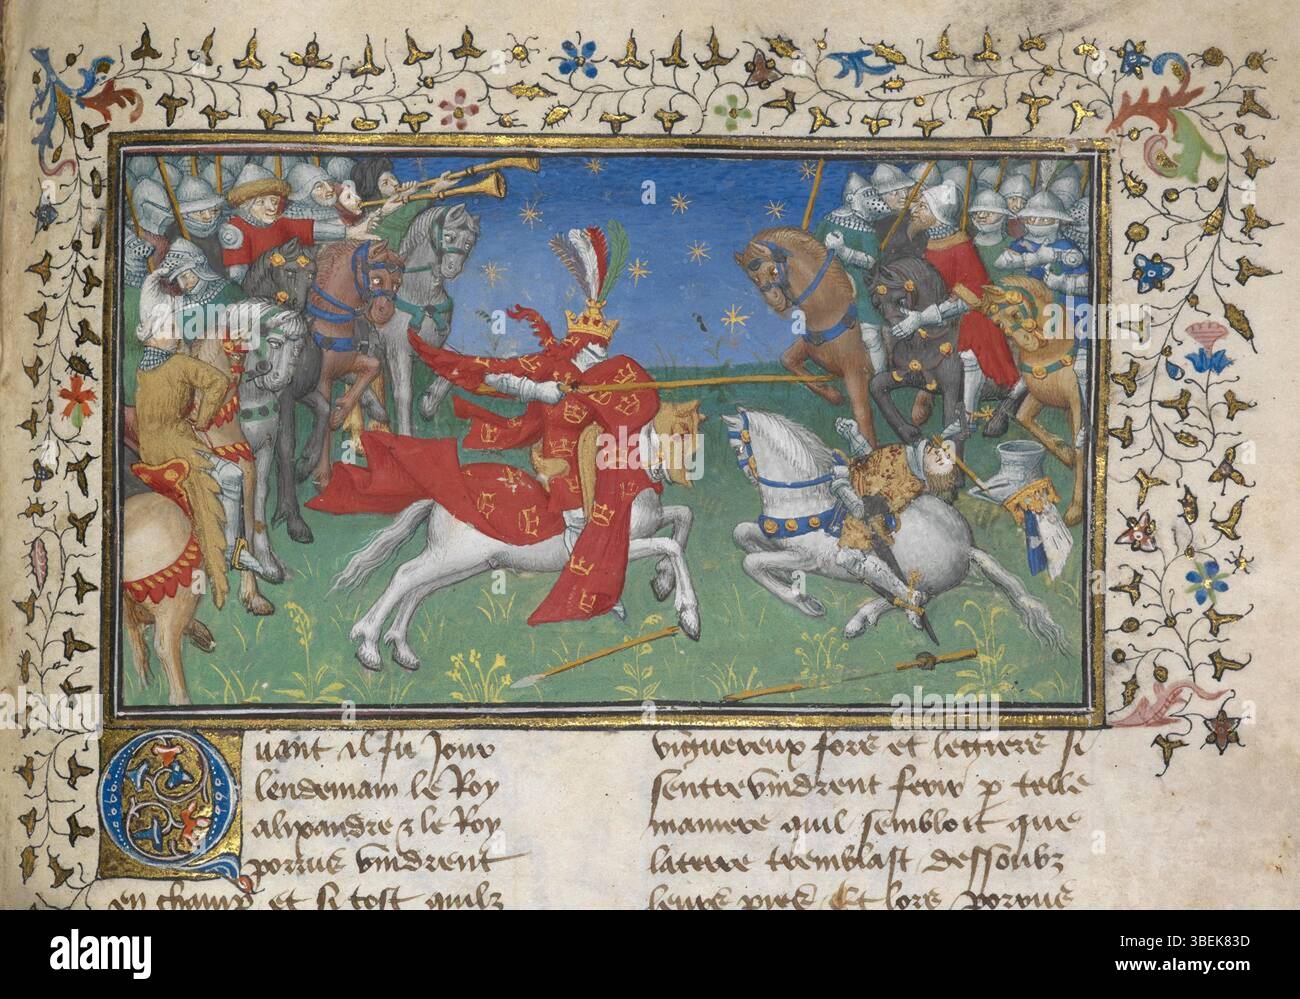 Quant il fu jour
lendemain le Roy
alixandre & le Roy
porrus vindrent
en champ et si tost quilz
viguereux fors et legiers si
sentrevindrent ferir p telle
maniere quil sembloit que
la terre tremblast dessoubz
leurs pies Et lors porrus
alamy
Image ID: 3BEK83D
www.alamy.com